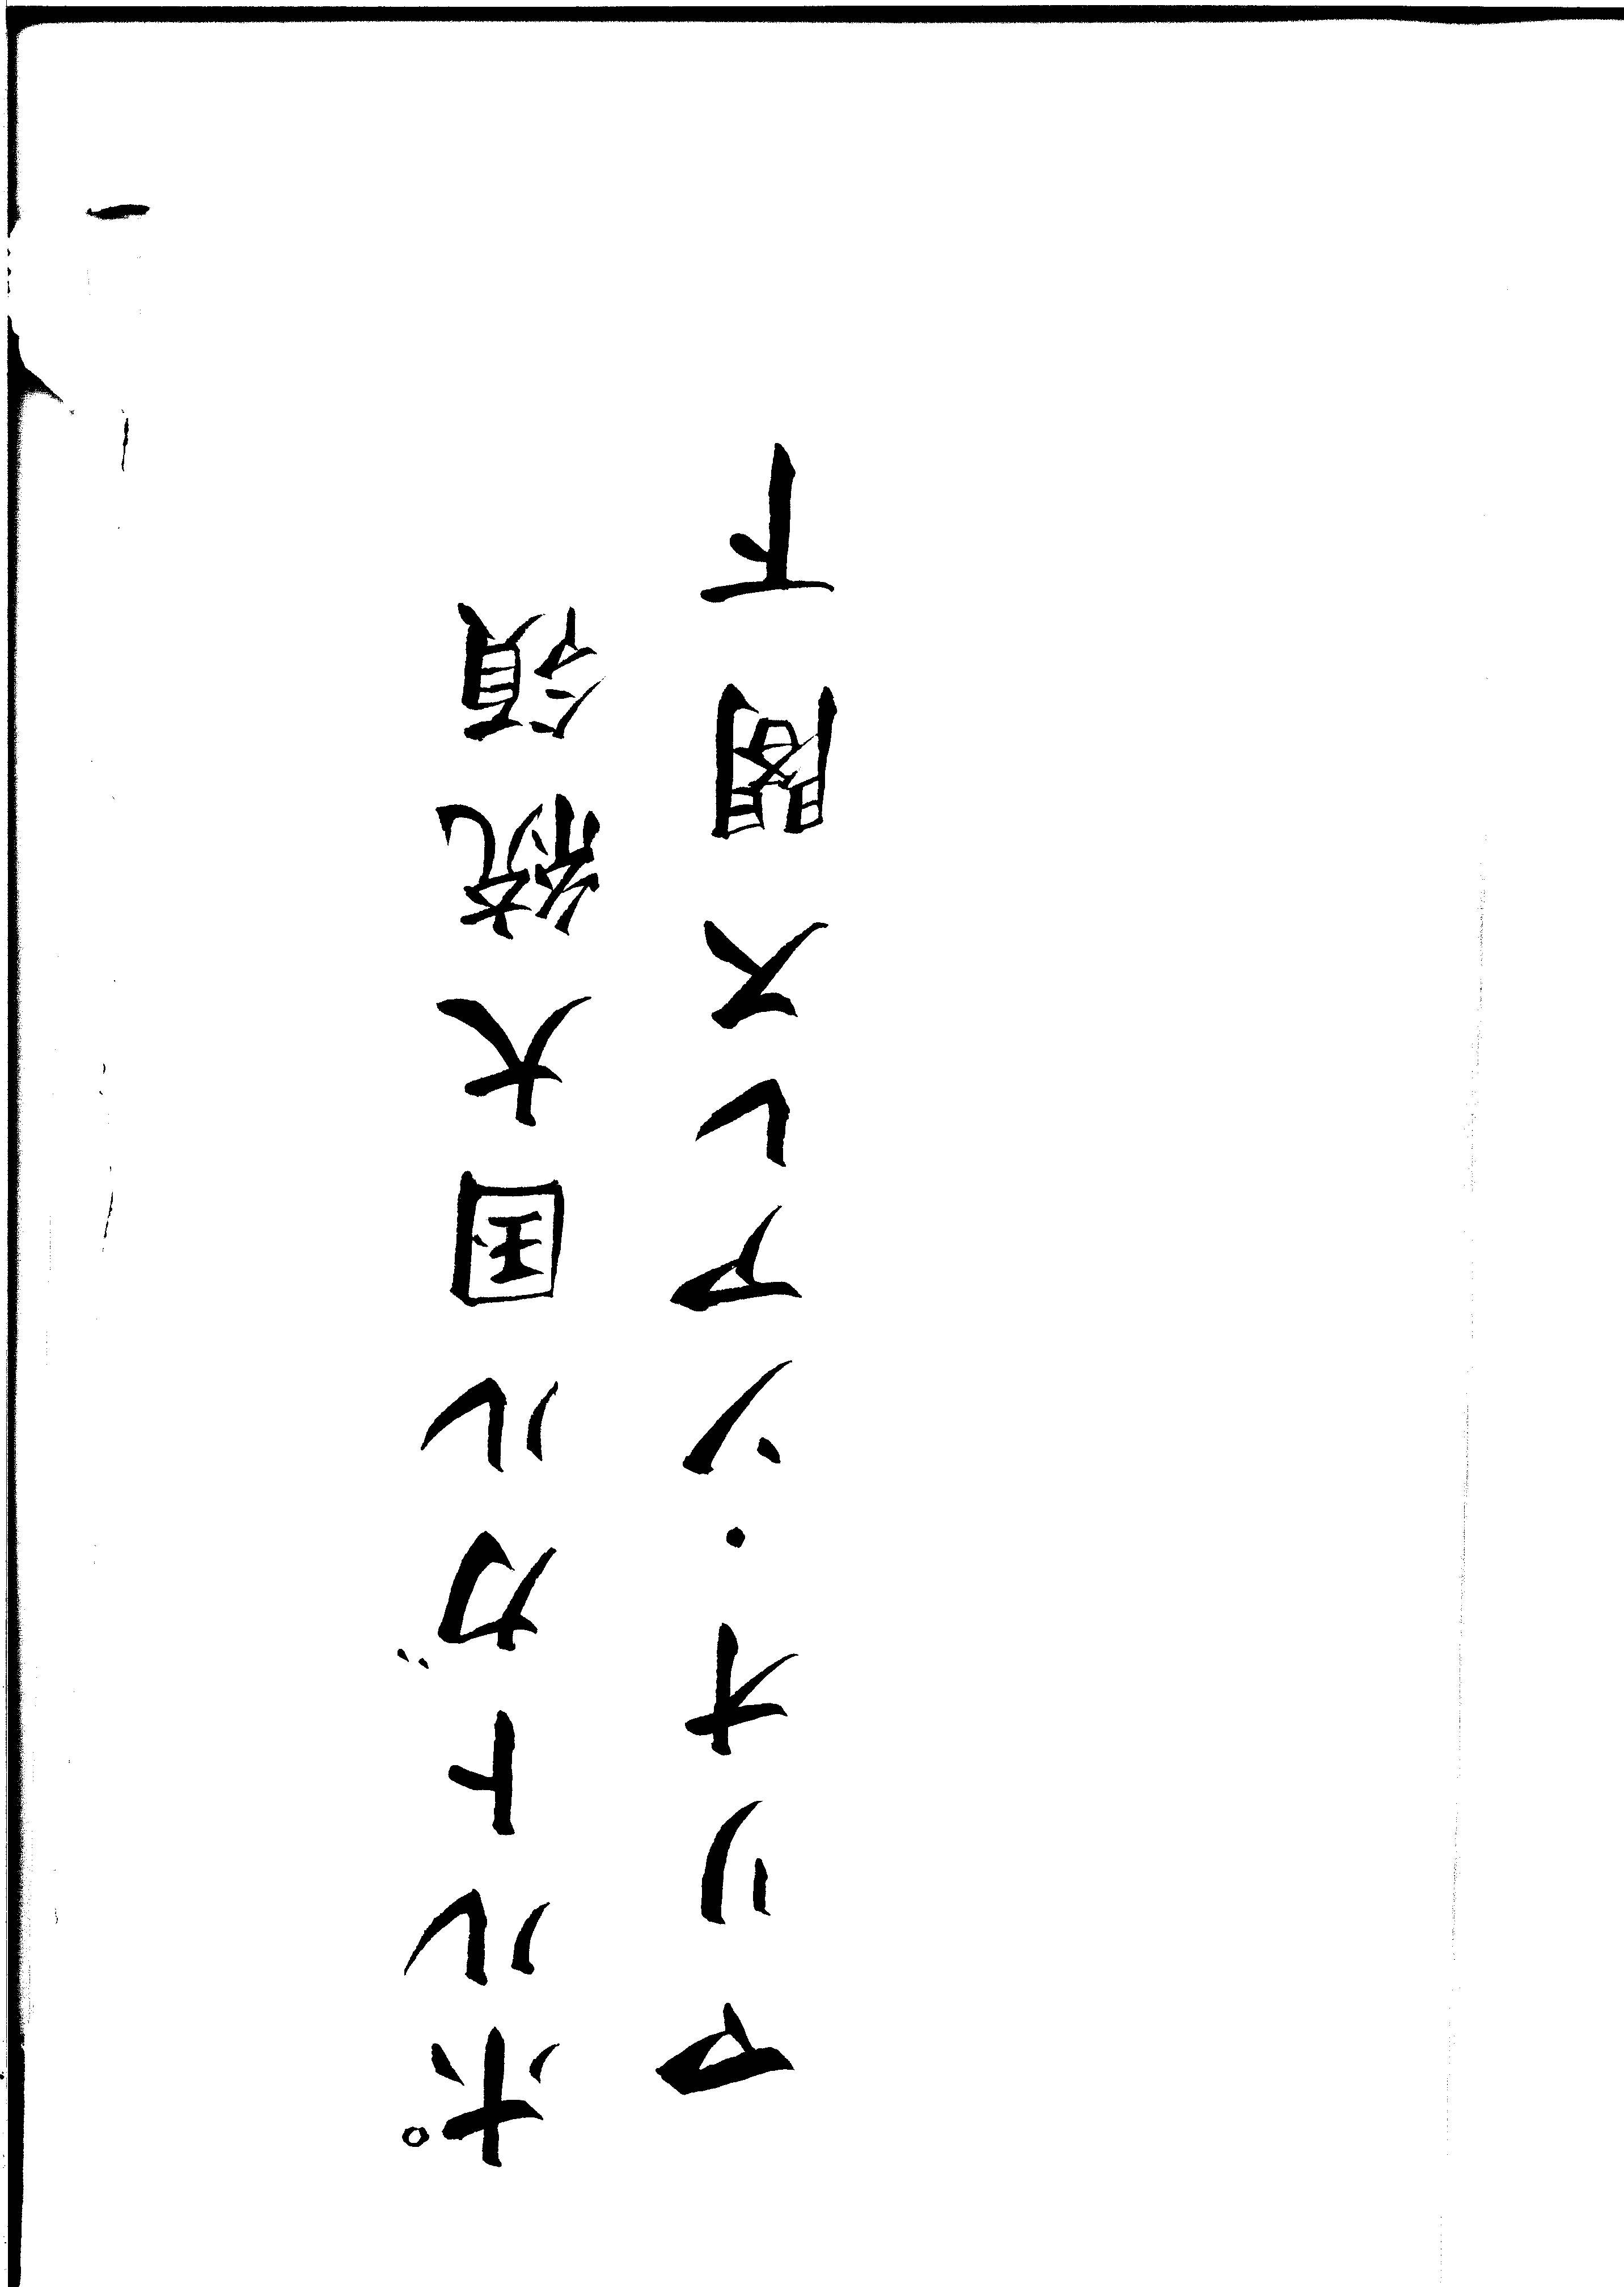 ポルトガル国大統領
マリオ・ソアレス閣下